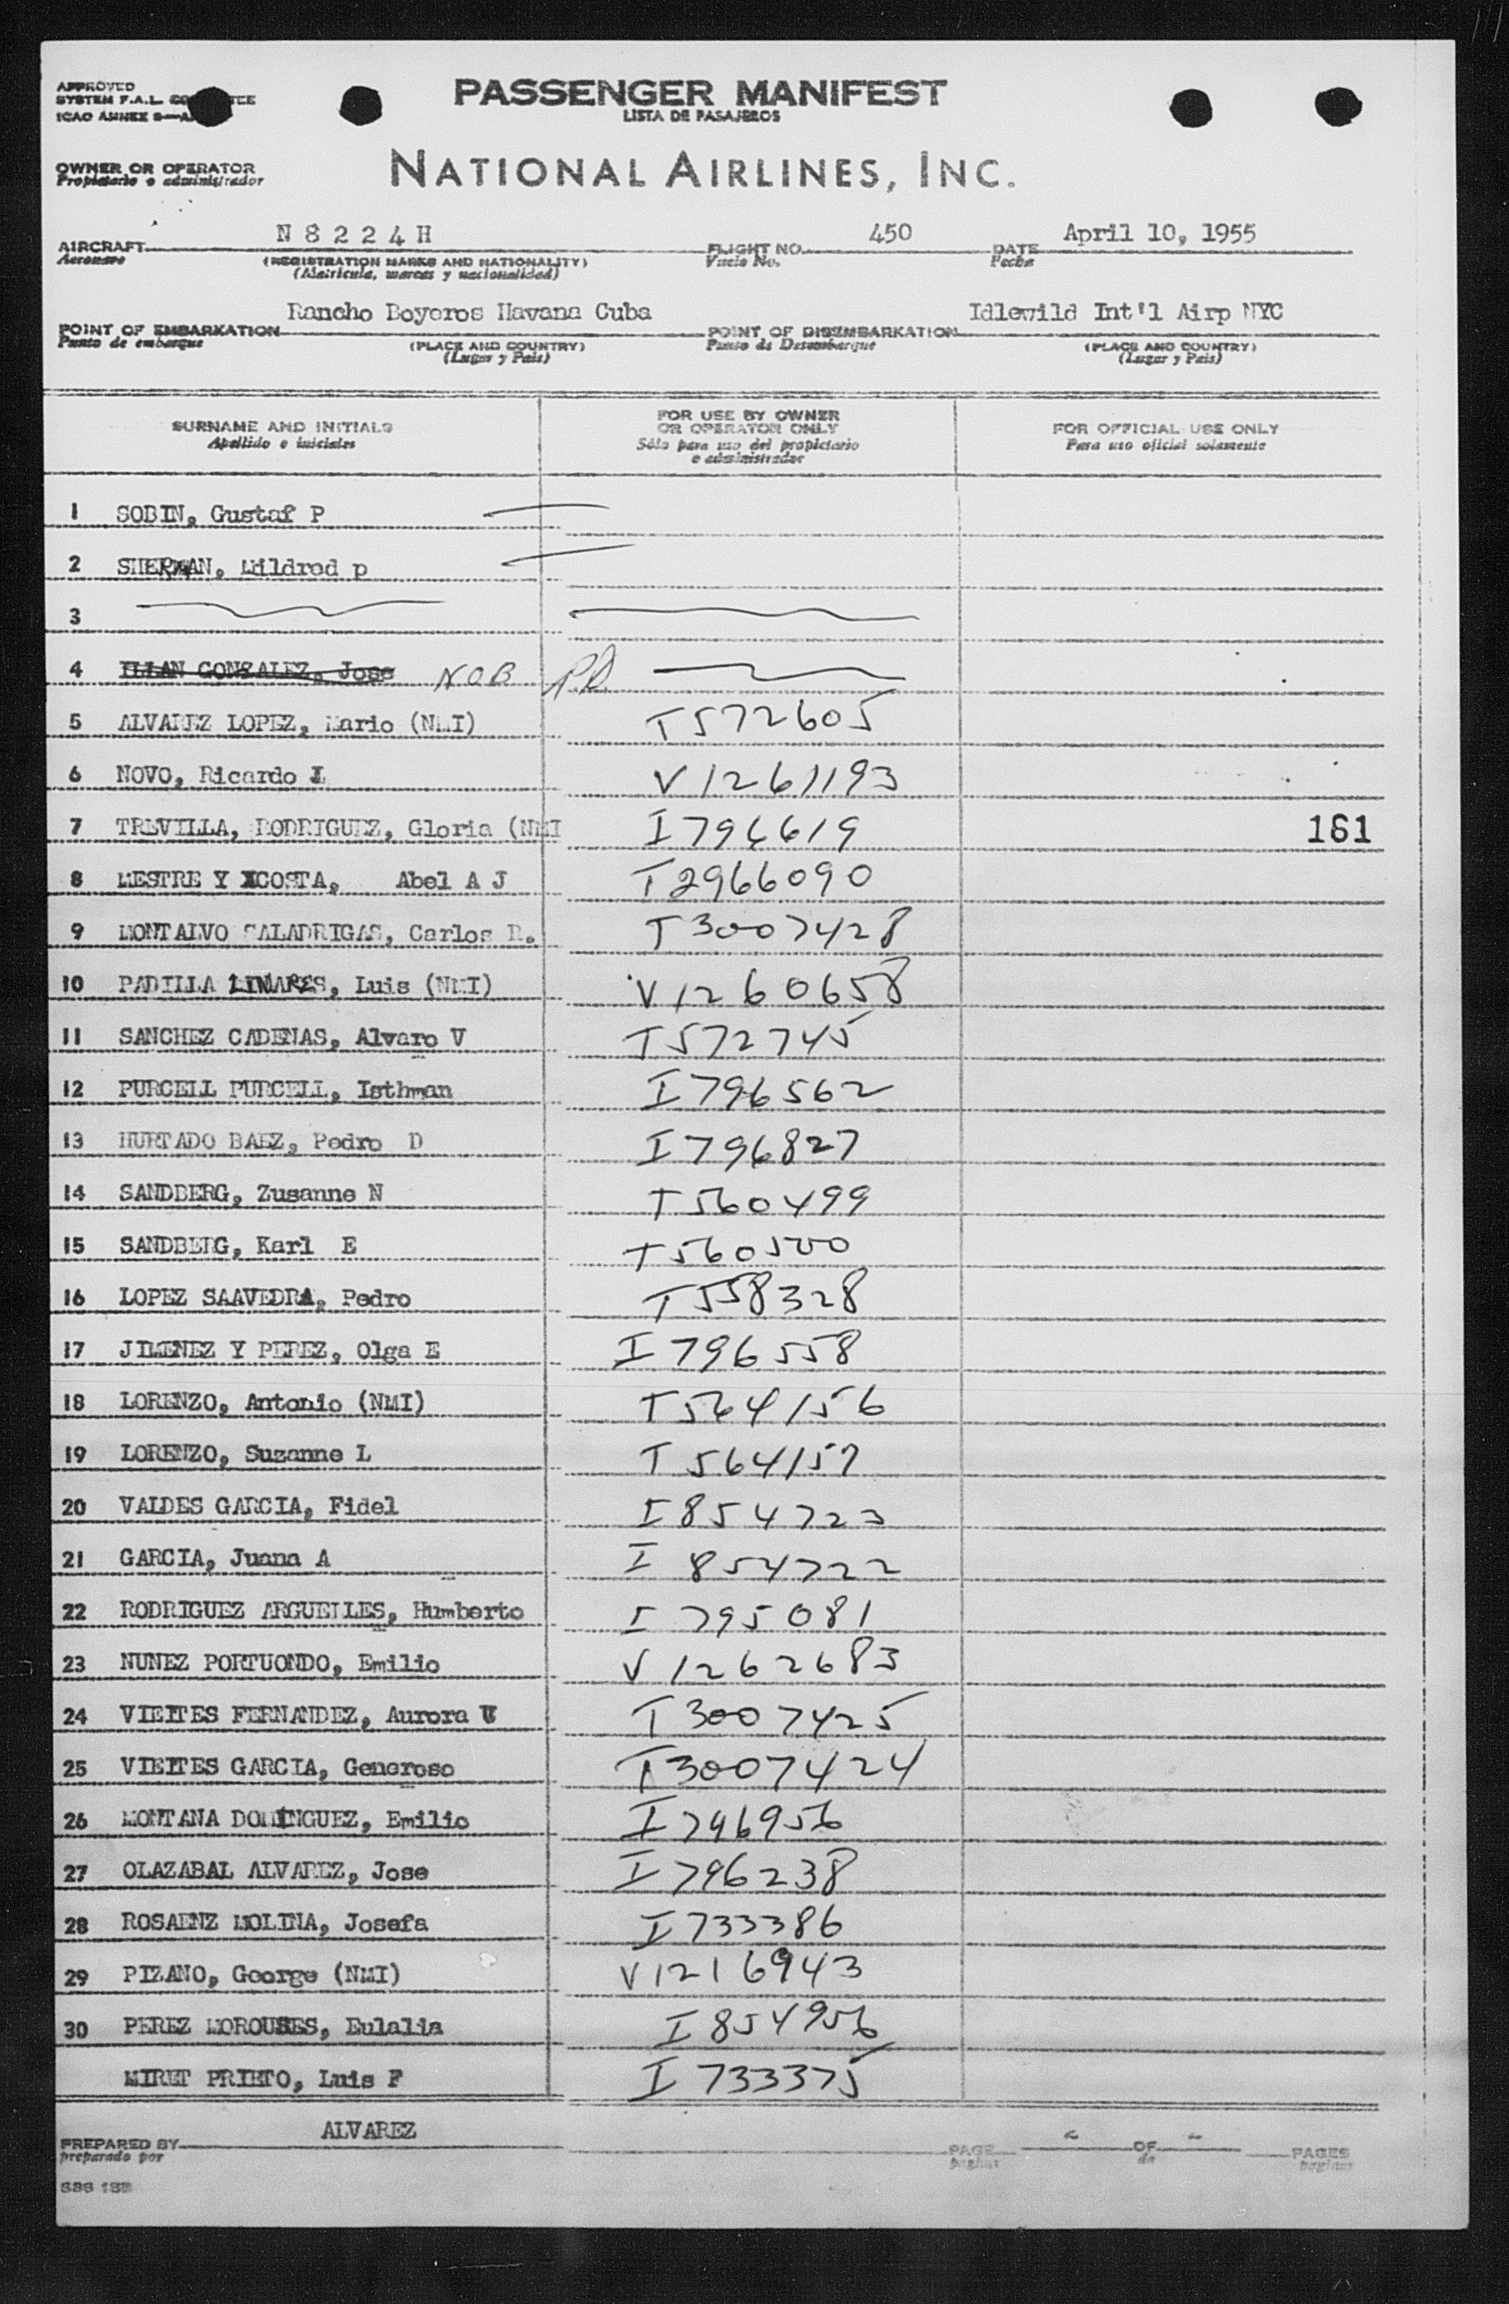 APPROVED
SYSTEM F.A.L.
ICAO ANNEX 9
PASSENGER MANIFEST
LISTA DE PASAJEROS
OWNER OR OPERATOR
Propietario o administrador
NATIONAL AIRLINES, INC.
AIRCRAFT N 8 2 2 4 H FLIGHT NO. 450 DATE April 10, 1955
Aeronave (REGISTRATION MARKS AND NATIONALITY) Vuelo No. Fecha
(Matricula, marcas y nacionalidad)
POINT OF EMBARKATION Rancho Boyeros Havana Cuba POINT OF DISEMBARKATION Idlewild Int'l Airp NYC
Punto de embarque (PLACE AND COUNTRY) Punto de Desembarque (PLACE AND COUNTRY)
(Lugar y Pais) (Lugar y Pais)
SURNAME AND INITIALS FOR USE BY OWNER OR OPERATOR ONLY FOR OFFICIAL USE ONLY
Apellido e iniciales Sólo para uso del propietario o administrador Para uso oficial solamente
1 SOBIN, Gustaf P
2 SHERMAN, Mildred p
3
4 ILLAN GONZALEZ, Jose NOB
5 ALVAREZ LOPEZ, Mario (NMI) T572605
6 NOVO, Ricardo L V1261193
7 TREVILLA, RODRIGUEZ, Gloria (NMI I796619 161
8 MESTRE Y ACOSTA, Abel A J T2966090
9 MONTALVO SALADRIGAS, Carlos R. T3007428
10 PADILLA LINARES, Luis (NMI) V1260658
11 SANCHEZ CADENAS, Alvaro V T572745
12 PURCELL PURCELL, Isthman I796562
13 HURTADO BAEZ, Pedro D I796827
14 SANDBERG, Zusanne N T560499
15 SANDBERG, Karl E T560500
16 LOPEZ SAAVEDRA, Pedro T558328
17 JIMENEZ Y PEREZ, Olga E I796558
18 LORENZO, Antonio (NMI) T564156
19 LORENZO, Suzanne L T564157
20 VALDES GARCIA, Fidel I854723
21 GARCIA, Juana A I854722
22 RODRIGUEZ ARGUELLES, Humberto I795081
23 NUNEZ PORTUONDO, Emilio V1262683
24 VIEITES FERNANDEZ, Aurora T3007425
25 VIEITES GARCIA, Generoso T3007424
26 MONTANA DOMINGUEZ, Emilio I746956
27 OLAZABAL ALVAREZ, Jose I796238
28 ROSAENZ MOLINA, Josefa I733386
29 PIZANO, George (NMI) V1216943
30 PEREZ MOROUSES, Eulalia I854956
MIRET PRIETO, Luis F I733375
PREPARED BY ALVAREZ PAGE OF PAGES
preparado por